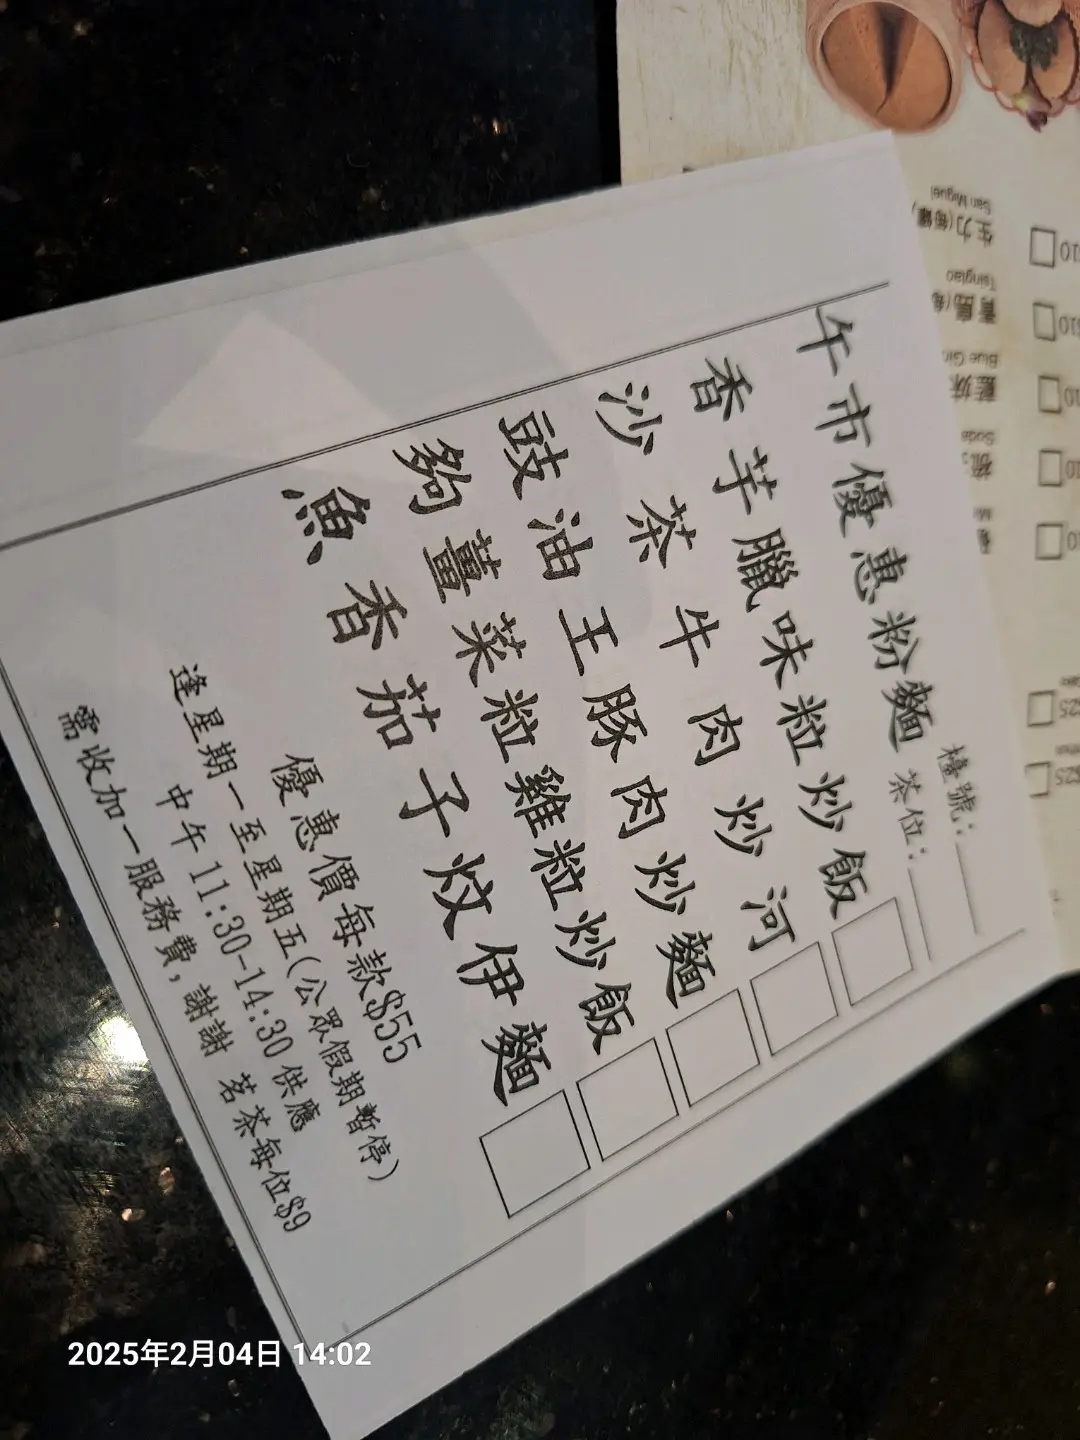 午市優惠粉麵
檯號：
茶位：
香芋臘味粒炒飯
沙茶牛肉炒河
豉油王豚肉炒麵
夠薑菜粒雞粒炒飯
魚香茄子炆伊麵
優惠價每款$55
逢星期一至星期五(公眾假期暫停)
中午11:30-14:30供應
需收加一服務費,謝謝 茗茶每位$9
生力(每罐)
San Miguel
青島(每
Tsingtao
藍妹
Blue Gi
Soda
2025年2月04日 14:02